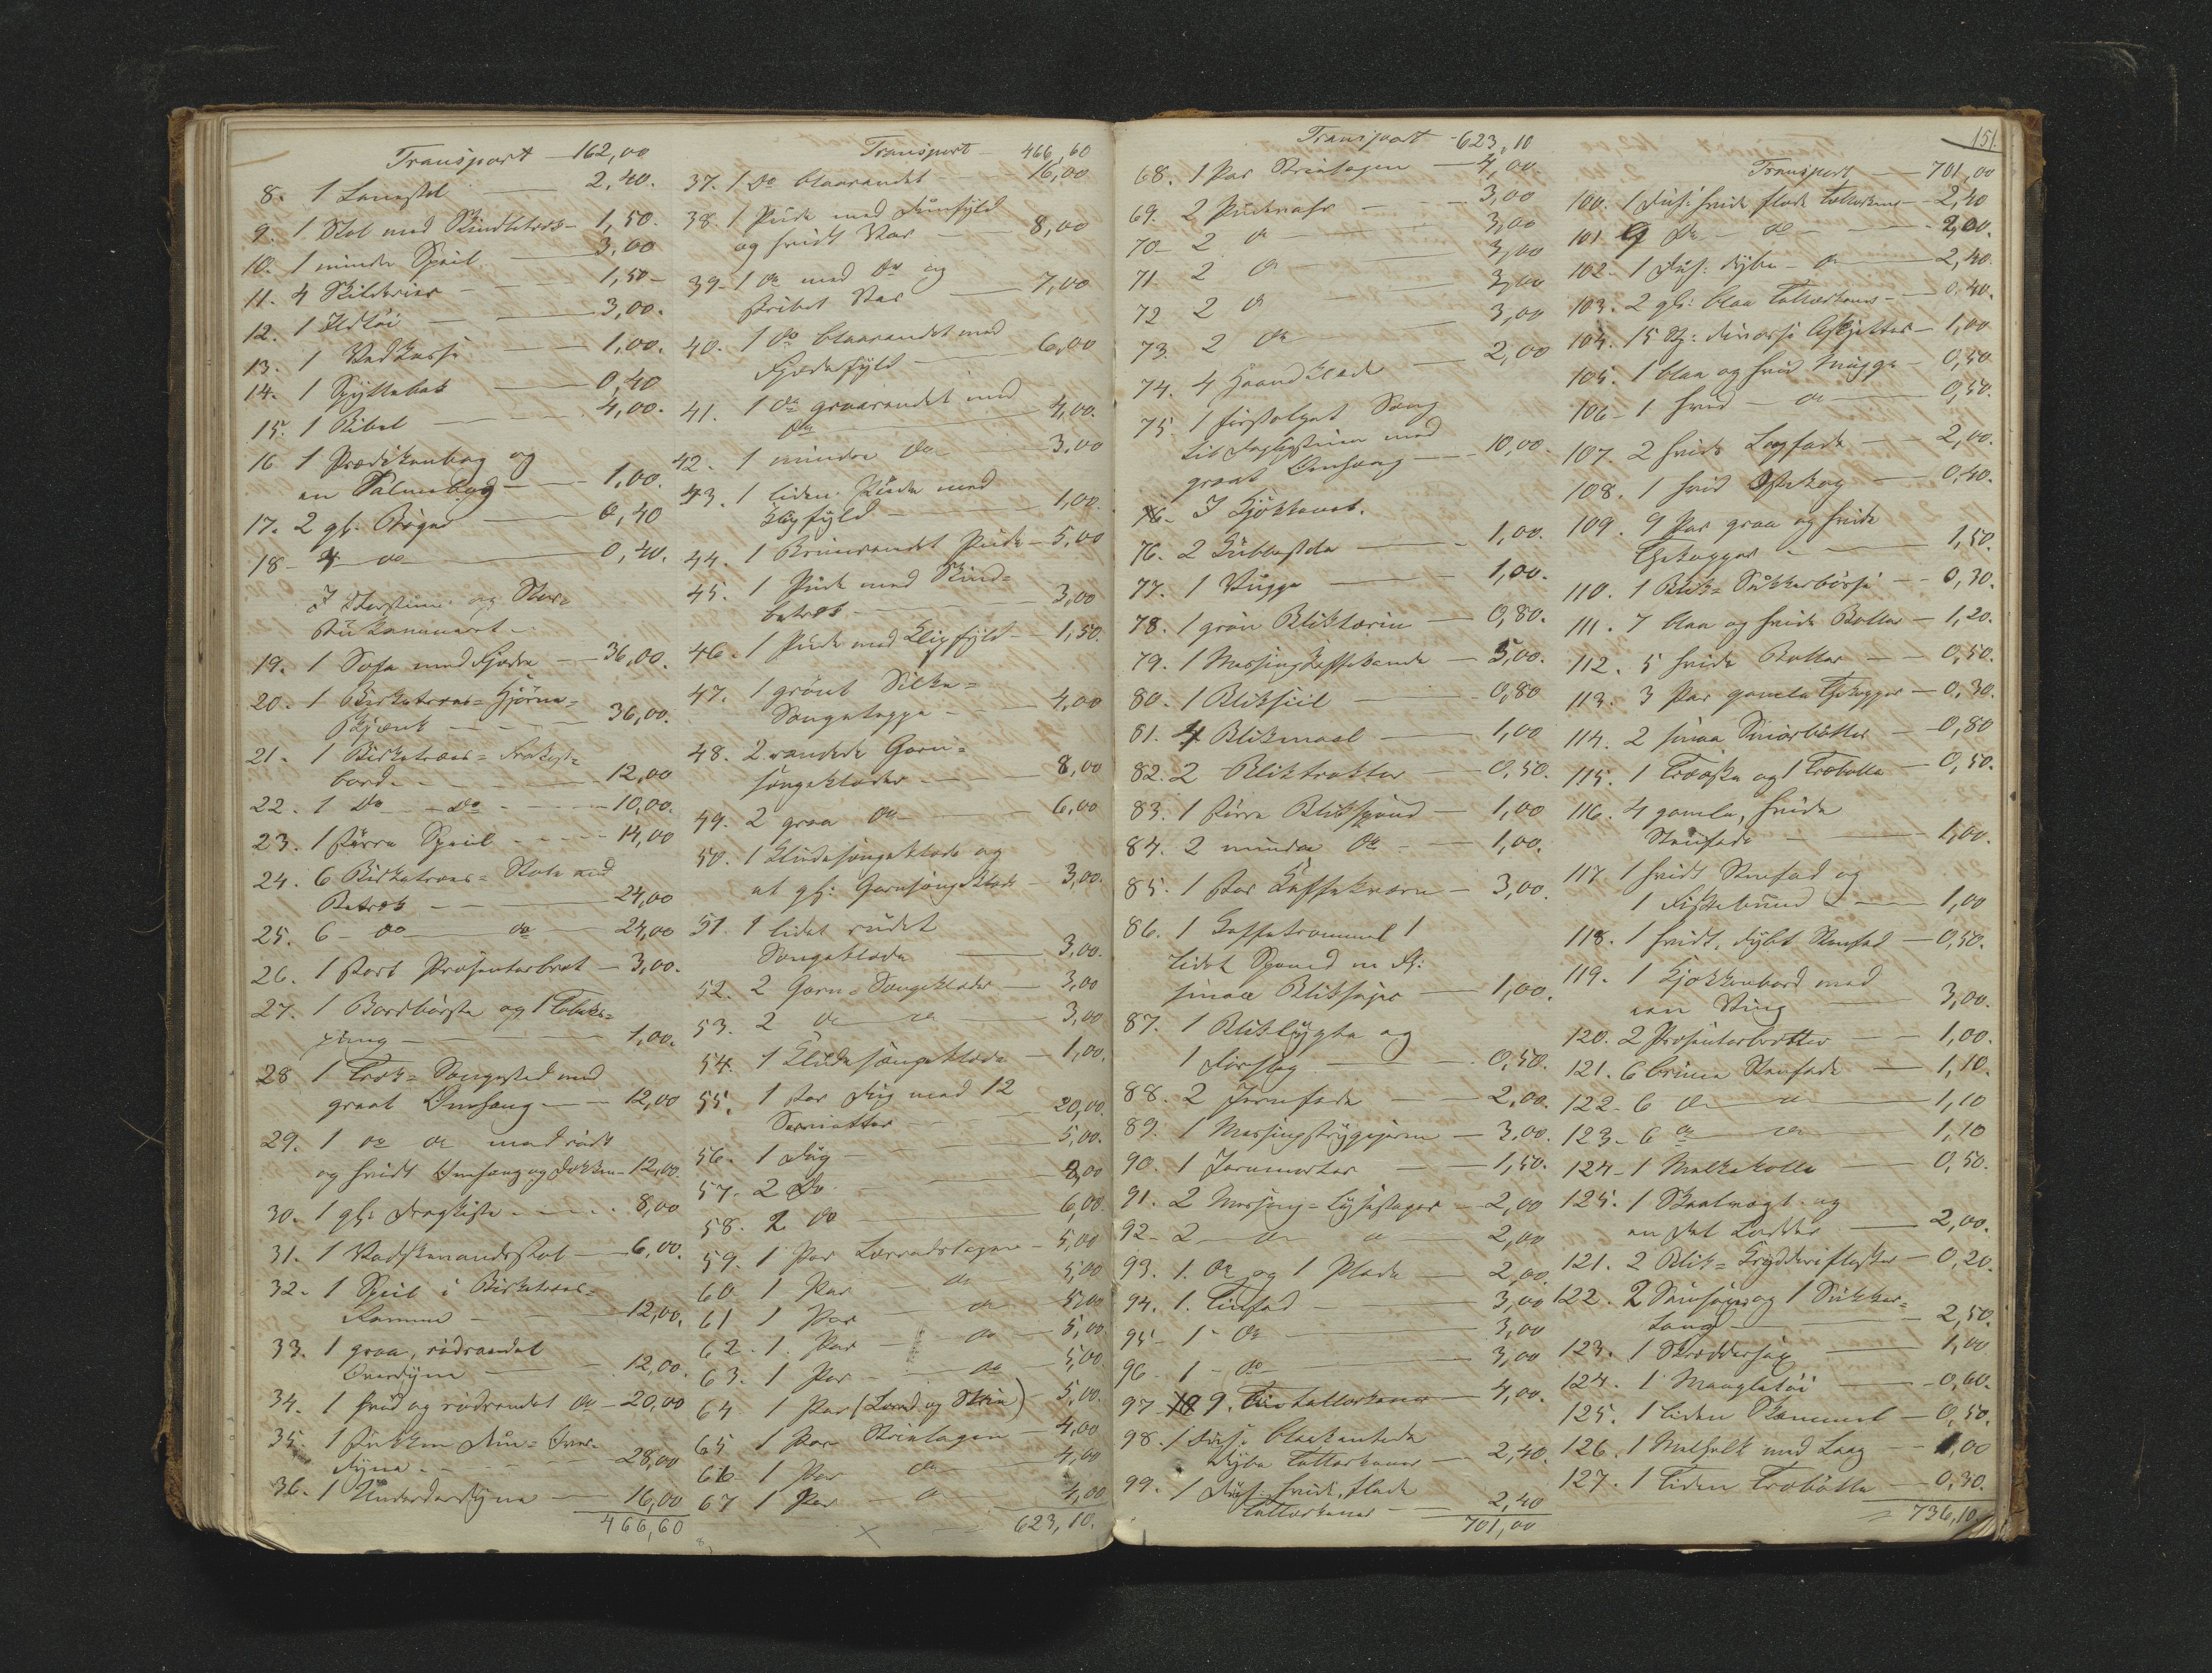 Transport – 162,00
8. 1 Lænestol — 2,40.
9. 1 Stol med Skindbetræk – 1,50.
10. 1 mindre Speil — 3,00
11. 4 Skilderier – 1,50 –
12. 1 Ildtøi — 3,00.
13. 1 Vedkasse — 1,00.
14. 1 Spyttebak — 0,40
15. 1 Bibel — 4,00.
16 1 Prædikenbog og
en Salmebog — 1,00.
17. 2 gl. Bøger — 0,40
18 – 4 do — 0,40.
19. 1 Sofa med Fjedre — 36,00.
20. 1 Birketræs = Hjørne =
Skjænk — 36,00.
21. 1 Birketræs = Frokost =
bord — 12,00
22. 1 Do – Do — 10,00.
23. 1 større Speil — 14,00
24. 6 Birketræs = Stole med
Betræk — 24,00
25. 6 – do — do — 24,00
26. 1 stort Præsenterbret — 3,00.
27. 1 Bordbørste og 1 Tobaks =
— 1,00.
28 1 Træk = Sengested med
grønt Omhæng — 12,00
29. 1 do do med rødt
og hvidt Omhæng og – 12,00.
30. 1 gl: Dragkiste — 8,00
31. 1 Vadskevandsstol — 6,00.
32. 1 Speil i Birketræs =
Ramme — 12,00.
33. 1 graa, rødrandet
Overdyne — 12,00.
34. 1 hvid og rødrandet do – 20,00
35. 1 Duun = Over =
dyne — 28,00
36. 1 Underdyne — 16,00
466,60
Transport 466,60
37. 1 Do blaarandet — 16,00
38. 1 Pude med Duunfyld
og hvidt Vaar — 8,00
39 – 1 do med do og
stribet Vaar — 7,00
40. 1 do blaarandet med
Fjederfyld — 6,00
41. 1 do graarandet med
do — 4,00.
42. 1 mindre do — 3,00
43. 1 liden Pude med
fyld — 1,00.
44. 1 Brunrandet Pude – 5,00
45. 1 Pude med Skind =
betræk — 3,00
46. 1 Pude med fyld – 1,50.
47. 1 grønt Silke =
Sengeteppe — 4,00
48. 2 randede Garn =
sengeklæder — 8,00
49. 2 graa do — 6,00
50. 1 Kludesengeklæde og
et gl: Garnsengeklæde – 3,00.
51. 1 lidet rudet
Sengeklæde — 3,00.
52. 2 Garn = Sengeklæder — 3,00
53. 2 do do — 3,00
54. 1 Kludesengeklæde – 1,00.
55. 1 stor Dug med 12
Servietter — 20,00.
56. 1 Dug — 5,00.
57. 2 Do — 8,00
58. 2 do — 6,00
59. 1 Par Lærredslagen – 5,00
60 1 Par do 5,00
61 1 Par do 5,00
62. 1. Par — do — 5,00.
63. 1 Par — do 5,00.
64 1 Par (Lærred og Strie) – 5,00.
65 1 Par Strielagen – 4,00
66 1 Par do 4,00
67 1 Par — do 4,00
623,10.
151.
Transport – 623,10
68. 1 Par Strielagen — 4,00.
69. 2 Pudevar — 3,00
70 – 2 do — 3,00
71. 2 do — 3,00
72 2 do — 3,00
73. 2 do — 3,00
74. 4 Haandklæder — 2,00
75 1 Seng
til med
grønt Omhæng — 10,00.
I Kjøkkenet.
76. 2 Kubbestole — 1,00.
77. 1 Vugge — 1,00.
78. 1 grøn Blikterrin — 0,80.
79. 1 Messingkaffekande — 5,00.
80. 1 Bliksiil — 0,80
81. 4 Blikmaal — 1,00
82. 2 Bliktragter — 0,50.
83. 1 større Blikspand — 1,00
84. 2 mindre do — 1,00.
85. 1 stor Kaffekværn — 3,00.
86. 1 Kaffetrommel 1
lidet Spand m Fl:
smaae — 1,00.
87. 1 Bliklygte og
1 Dørslag — 0,50.
88. 2 Jernfade — 2,00.
89. 1 Messingstrygejern — 3,00.
90. 1 Jernmorter — 1,50.
91. 2 Messing = Lysestager – 2,00
92 – 2 — do do 2,00
93. 1. do og 1 Plade — 2,00.
94. 1. Tinfad — 3,00
95 – 1 – do — 3,00
96 – 1 – do — 3,00
97 – 9. Tintallerkener — 4,00.
98. 1 Dus: blaakantede
dybe Tallerkener — 2,40.
99. 1 Dus: hvide, flade
Tallerkener — 2,40
701,00
Transport — 701,00
100. 1 Dus: hvide flade Tallerkener – 2,40
101 9 Do — do — 2,00.
102. 1 Dus: dybe – do — 2,40.
103. 2 gl: blaa Tallerkener — 0,40.
104. 15 St: diverse Asjetter — 1,00
105. 1 blaa og hvid Mugge – 0,50
106 – 1 hvid — do — 0,50.
107. 2 hvide Laagfade — 2,00.
108. 1 hvid — 0,40.
109. 9 Par graa og hvide
Thekopper — 1,50.
110. 1 Blik = Sukkerbøsse — 0,30.
111. 7 blaa og hvide Boller — 1,20.
112. 5 hvide Boller — 0,50.
113. 3 Par gamle Thekopper — 0,30.
114. 2 smaa Smørbøtter — 0,80
115. 1 Træøske og 1 Træbolle — 0,50.
116. 4 gamle, hvide
Steenfade — 1,00.
117. 1 hvidt Steenfad og
1 Fiskebund — 1,00
118. 1 hvidt, dybt Steenfad — 0,50.
119. 1 Kjøkkenbord med
een Ving — 3,00.
120. 2 Præsenterbretter — 1,00.
121. 6 brune Steenfade — 1,10.
122 – 6 do do — 1,10
123 – 6 do do 1,10
124 – 1 Melkekolle — 0,50.
125. 1 Skaalvægt og
en Del Lodder — 2,00.
121. 2 Blik = Krydderiflasker — 0,20.
122. 2 og 1 Sukker =
tang — 2,50.
123. 1 Skræddersax — 1,00
124. 1 Mangletøi — 0,60.
125. 1 liden Skammel — 0,50.
126. 1 med Laag — 1,00
127. 1 liden Træbøtte — 0,30.
736,10